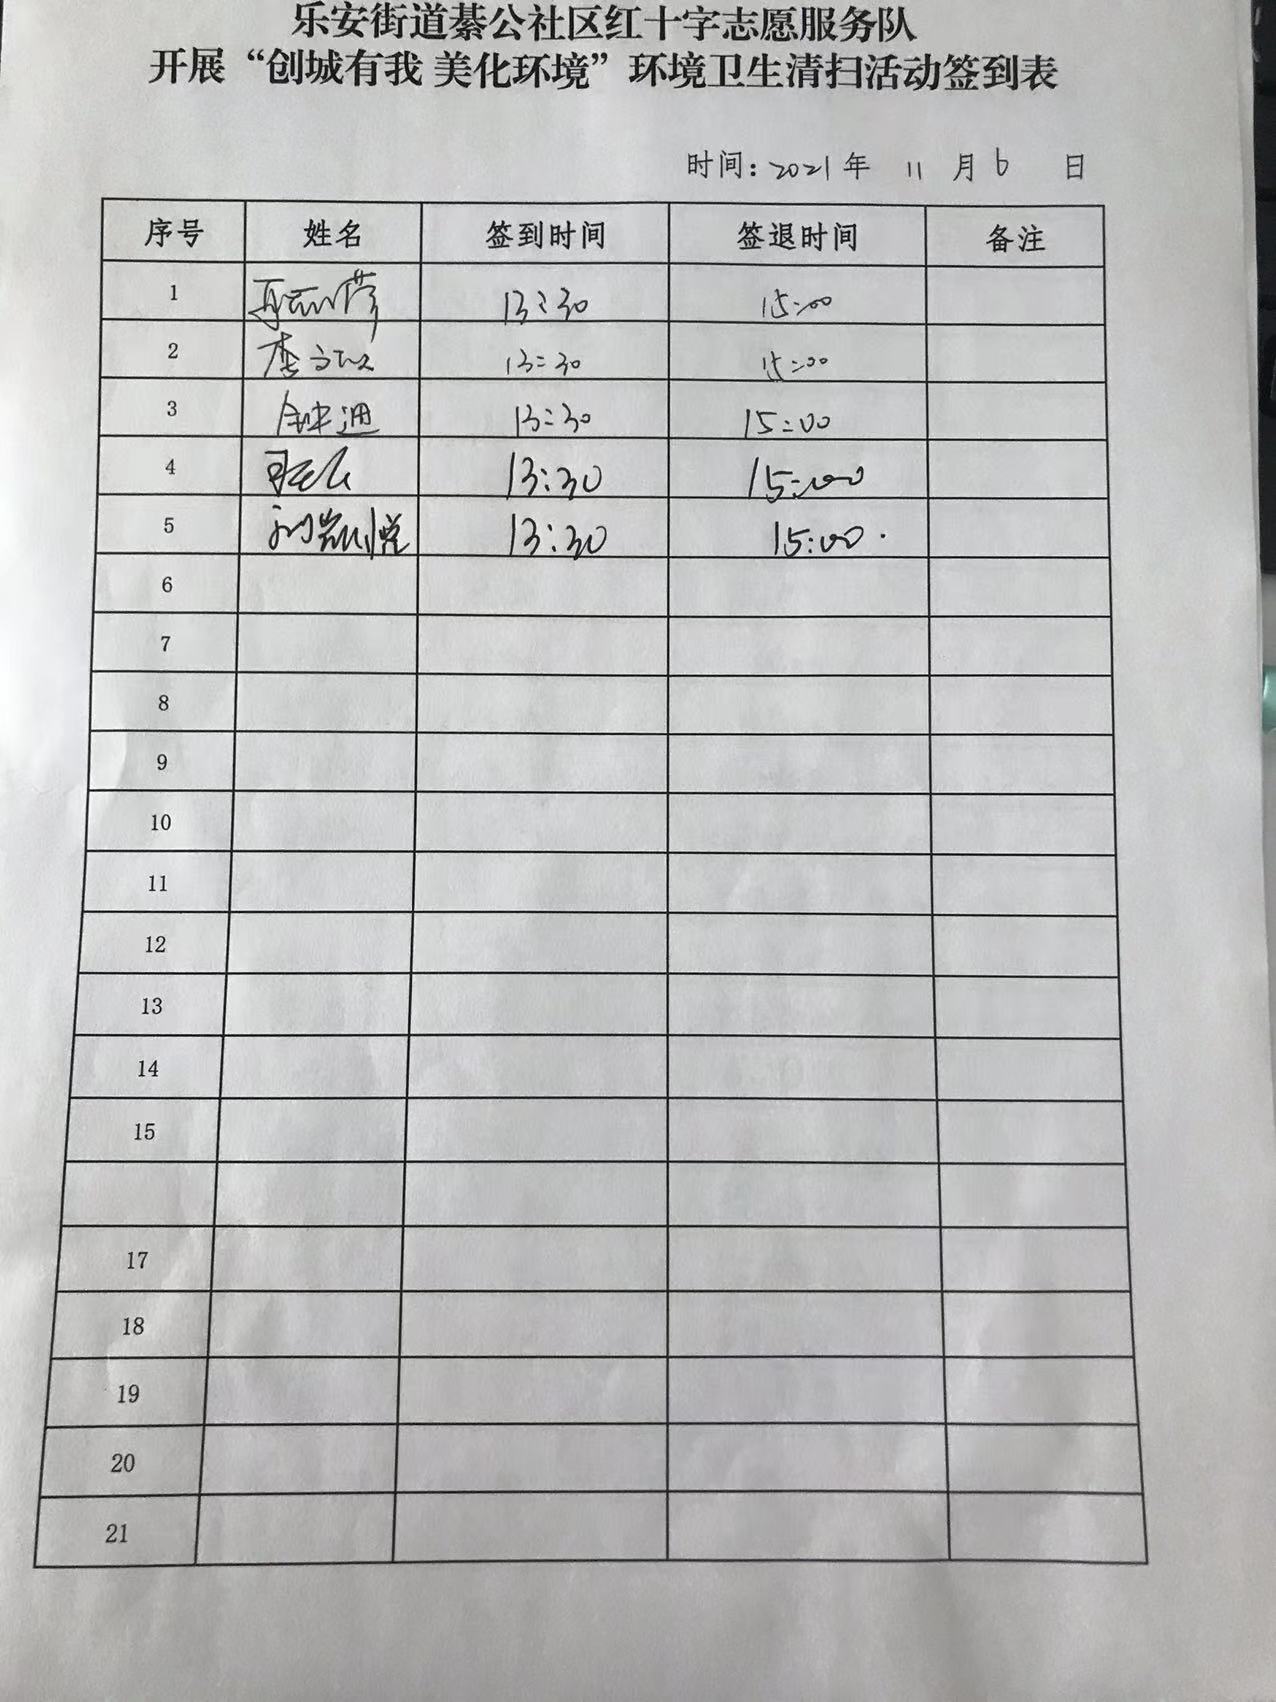 乐安街道綦公社区红十字志愿服务队
开展“创城有我 美化环境”环境卫生清扫活动签到表
时间：2021 年 11 月 6 日
序号 姓名 签到时间 签退时间 备注
1 13:30 15:00
2 13:30 15:00
3 13:30 15:00
4 13:30 15:00
5 13:30 15:00
6
7
8
9
10
11
12
13
14
15
17
18
19
20
21